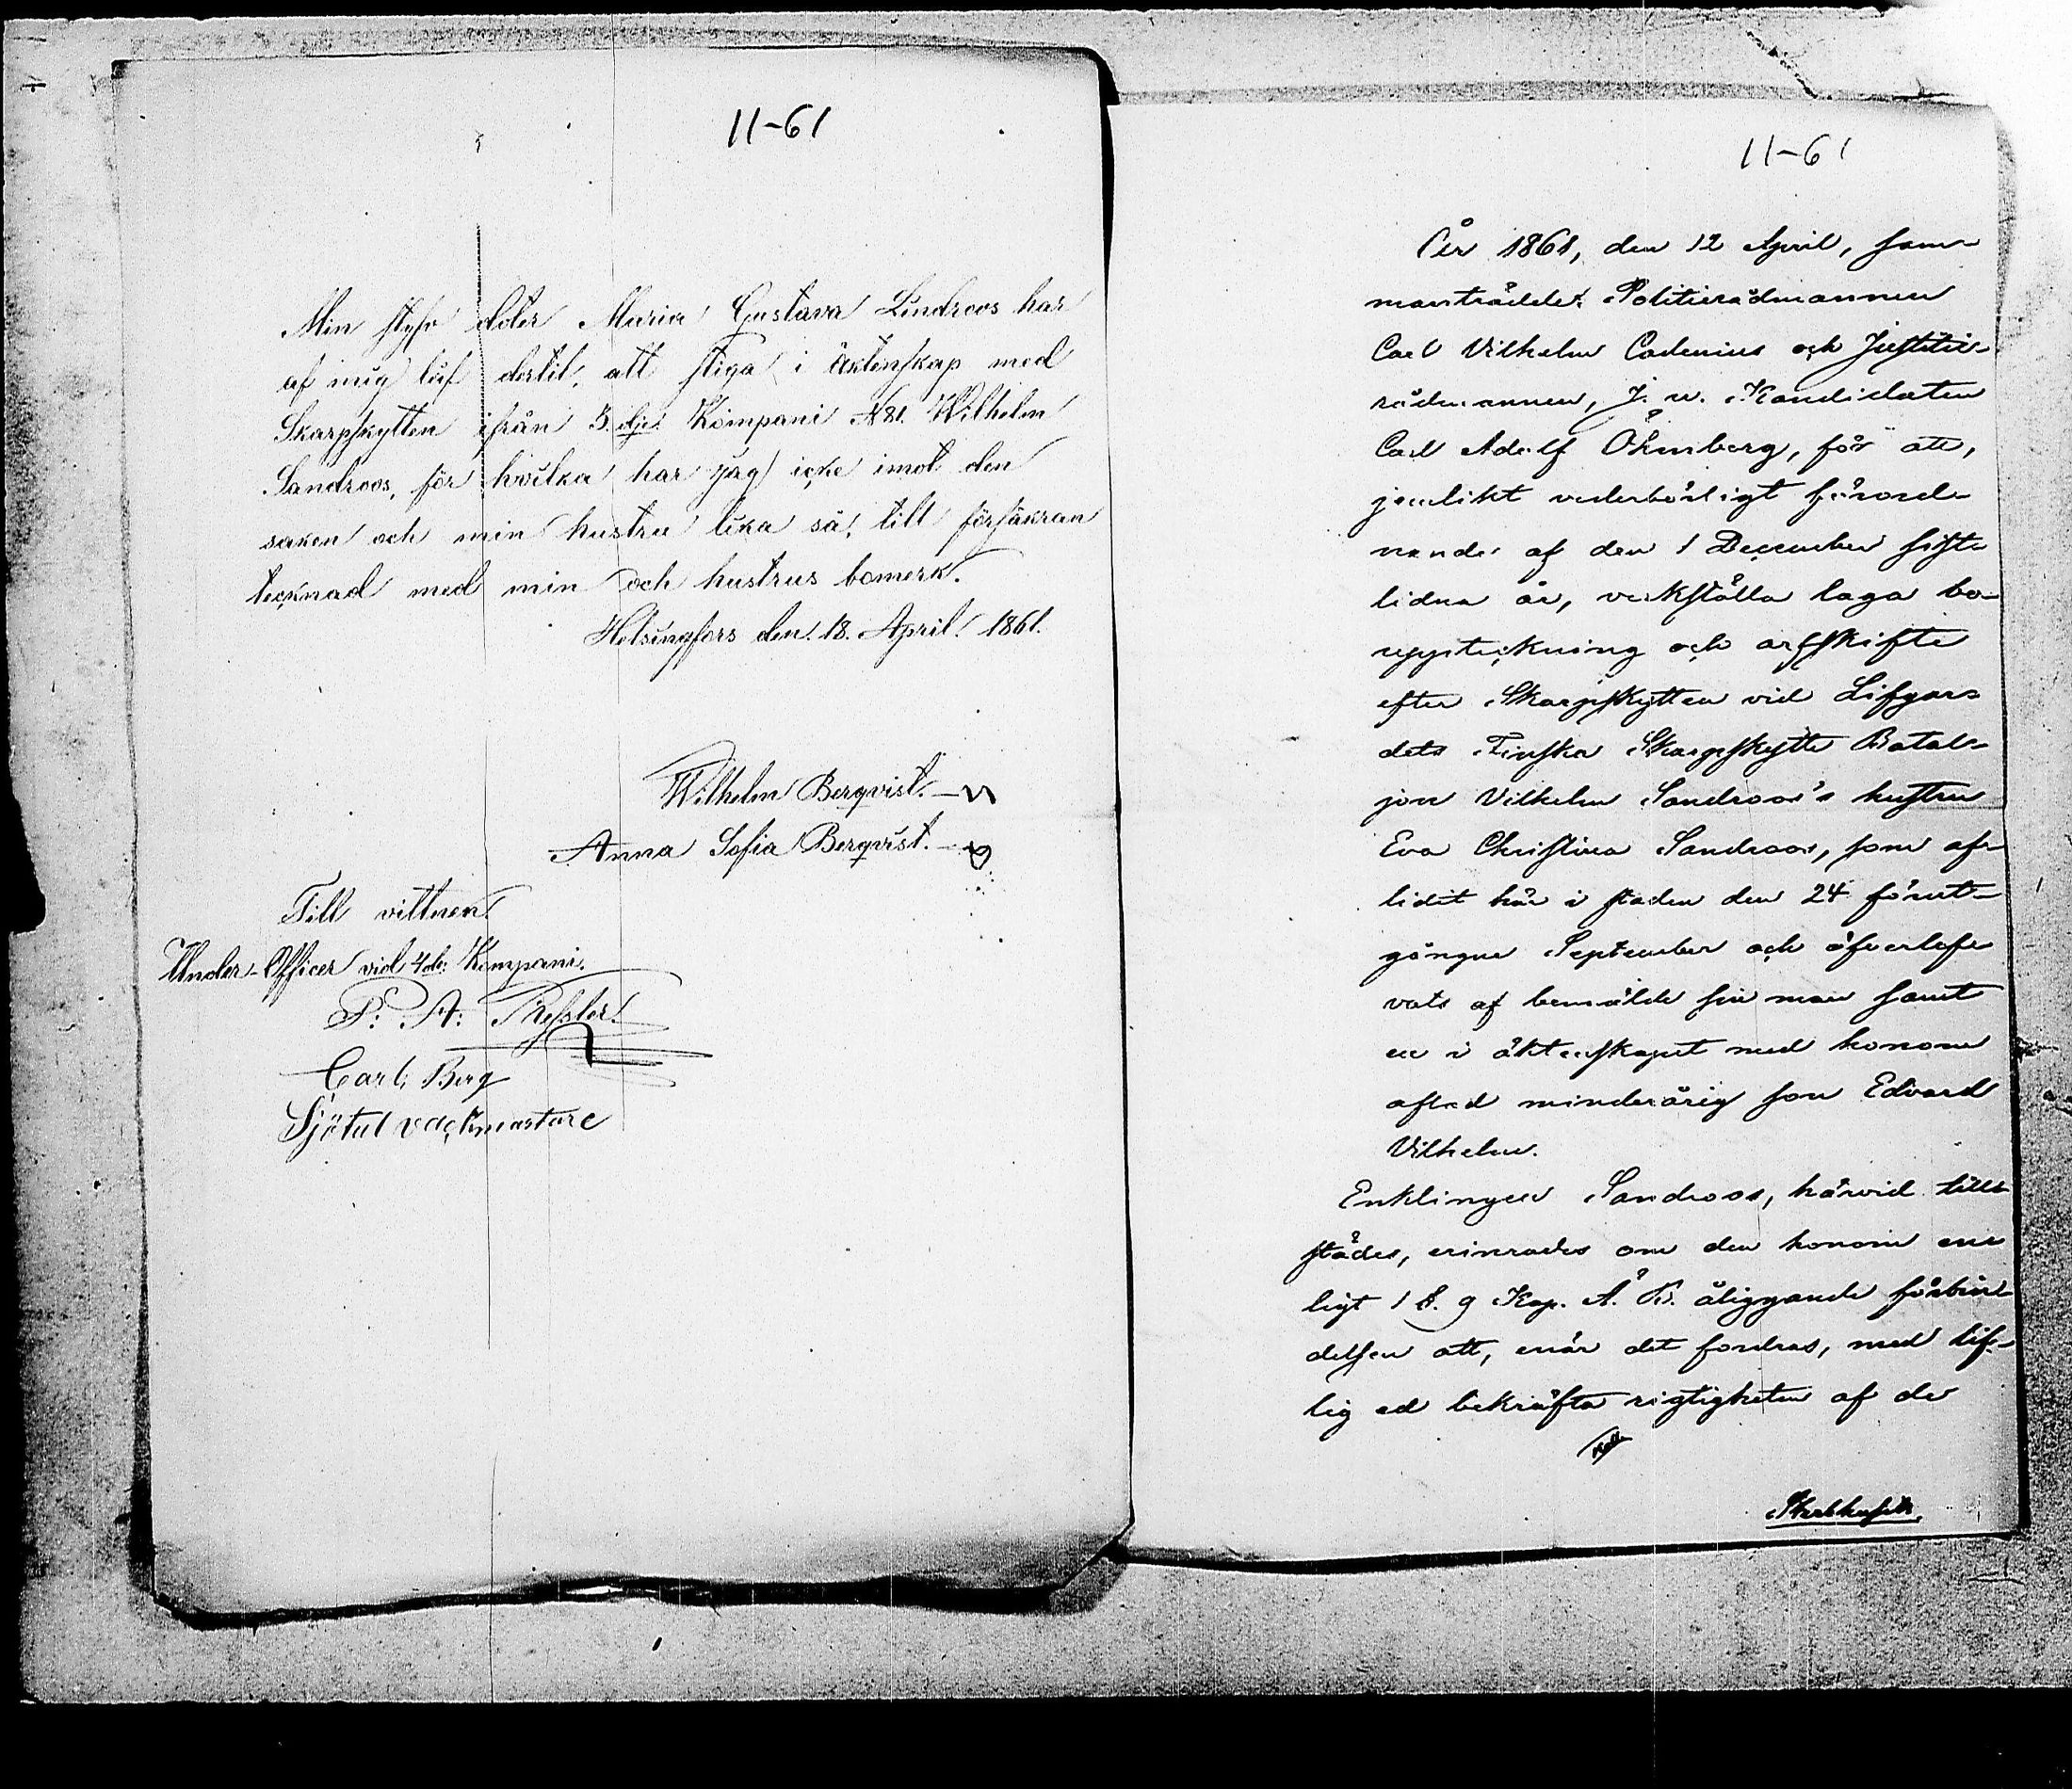 11-61
Min styfv doter Maria Gustava Lindroos har
af mig luf dertil, att stiga i äktenskap med
Skarpskytten ifrån 3. dje Kompani N 81. Wilhelm
Sandroos, för hvilka har jag icke imot den
saken och min hustru lika så, till försäkran
tecknad med min och hustrus bomerk.
Helsingfors den 18. April 1861.
Wilhelm Berqvist.
Anna Sofia Berqvist.
Till vittnen
Under-Officer vid 4de Kompani.
P: A:
Carl Berg
Sjötul vackmastare
11-61
År 1861, den 12 April, sam-
manträdde Politierådmannen
Carl Vilhelm Cadenius och Justitie-
rådmannen, J. u. Kandidaten
Carl Adolf Öhnberg, för att,
jemlikt vederbörligt förord-
nande af den 1 December sist-
lidna år, verkställa laga bo-
uppteckning och arfskifte
efter Skarpskytten vid Lifgar-
dets Finska Skarpskytte Batal-
jon Vilhelm Sandroos's hustru
Eva Christina Sandroos, som af-
lidit här i staden den 24 förut-
gångne September och öfverlef-
vats af bemälde sin man samt
en i äktenskapet med honom
aflad minderårig son Edvard
Vilhelm.
Enklingen Sandroos, härvid till-
städes, erinrades om den honom en-
ligt 1 §. 9 Kap. Ä. B. åliggande förbin-
delsen att, enär det fordras, med lif-
lig ed bekräfta rigtigheten af de